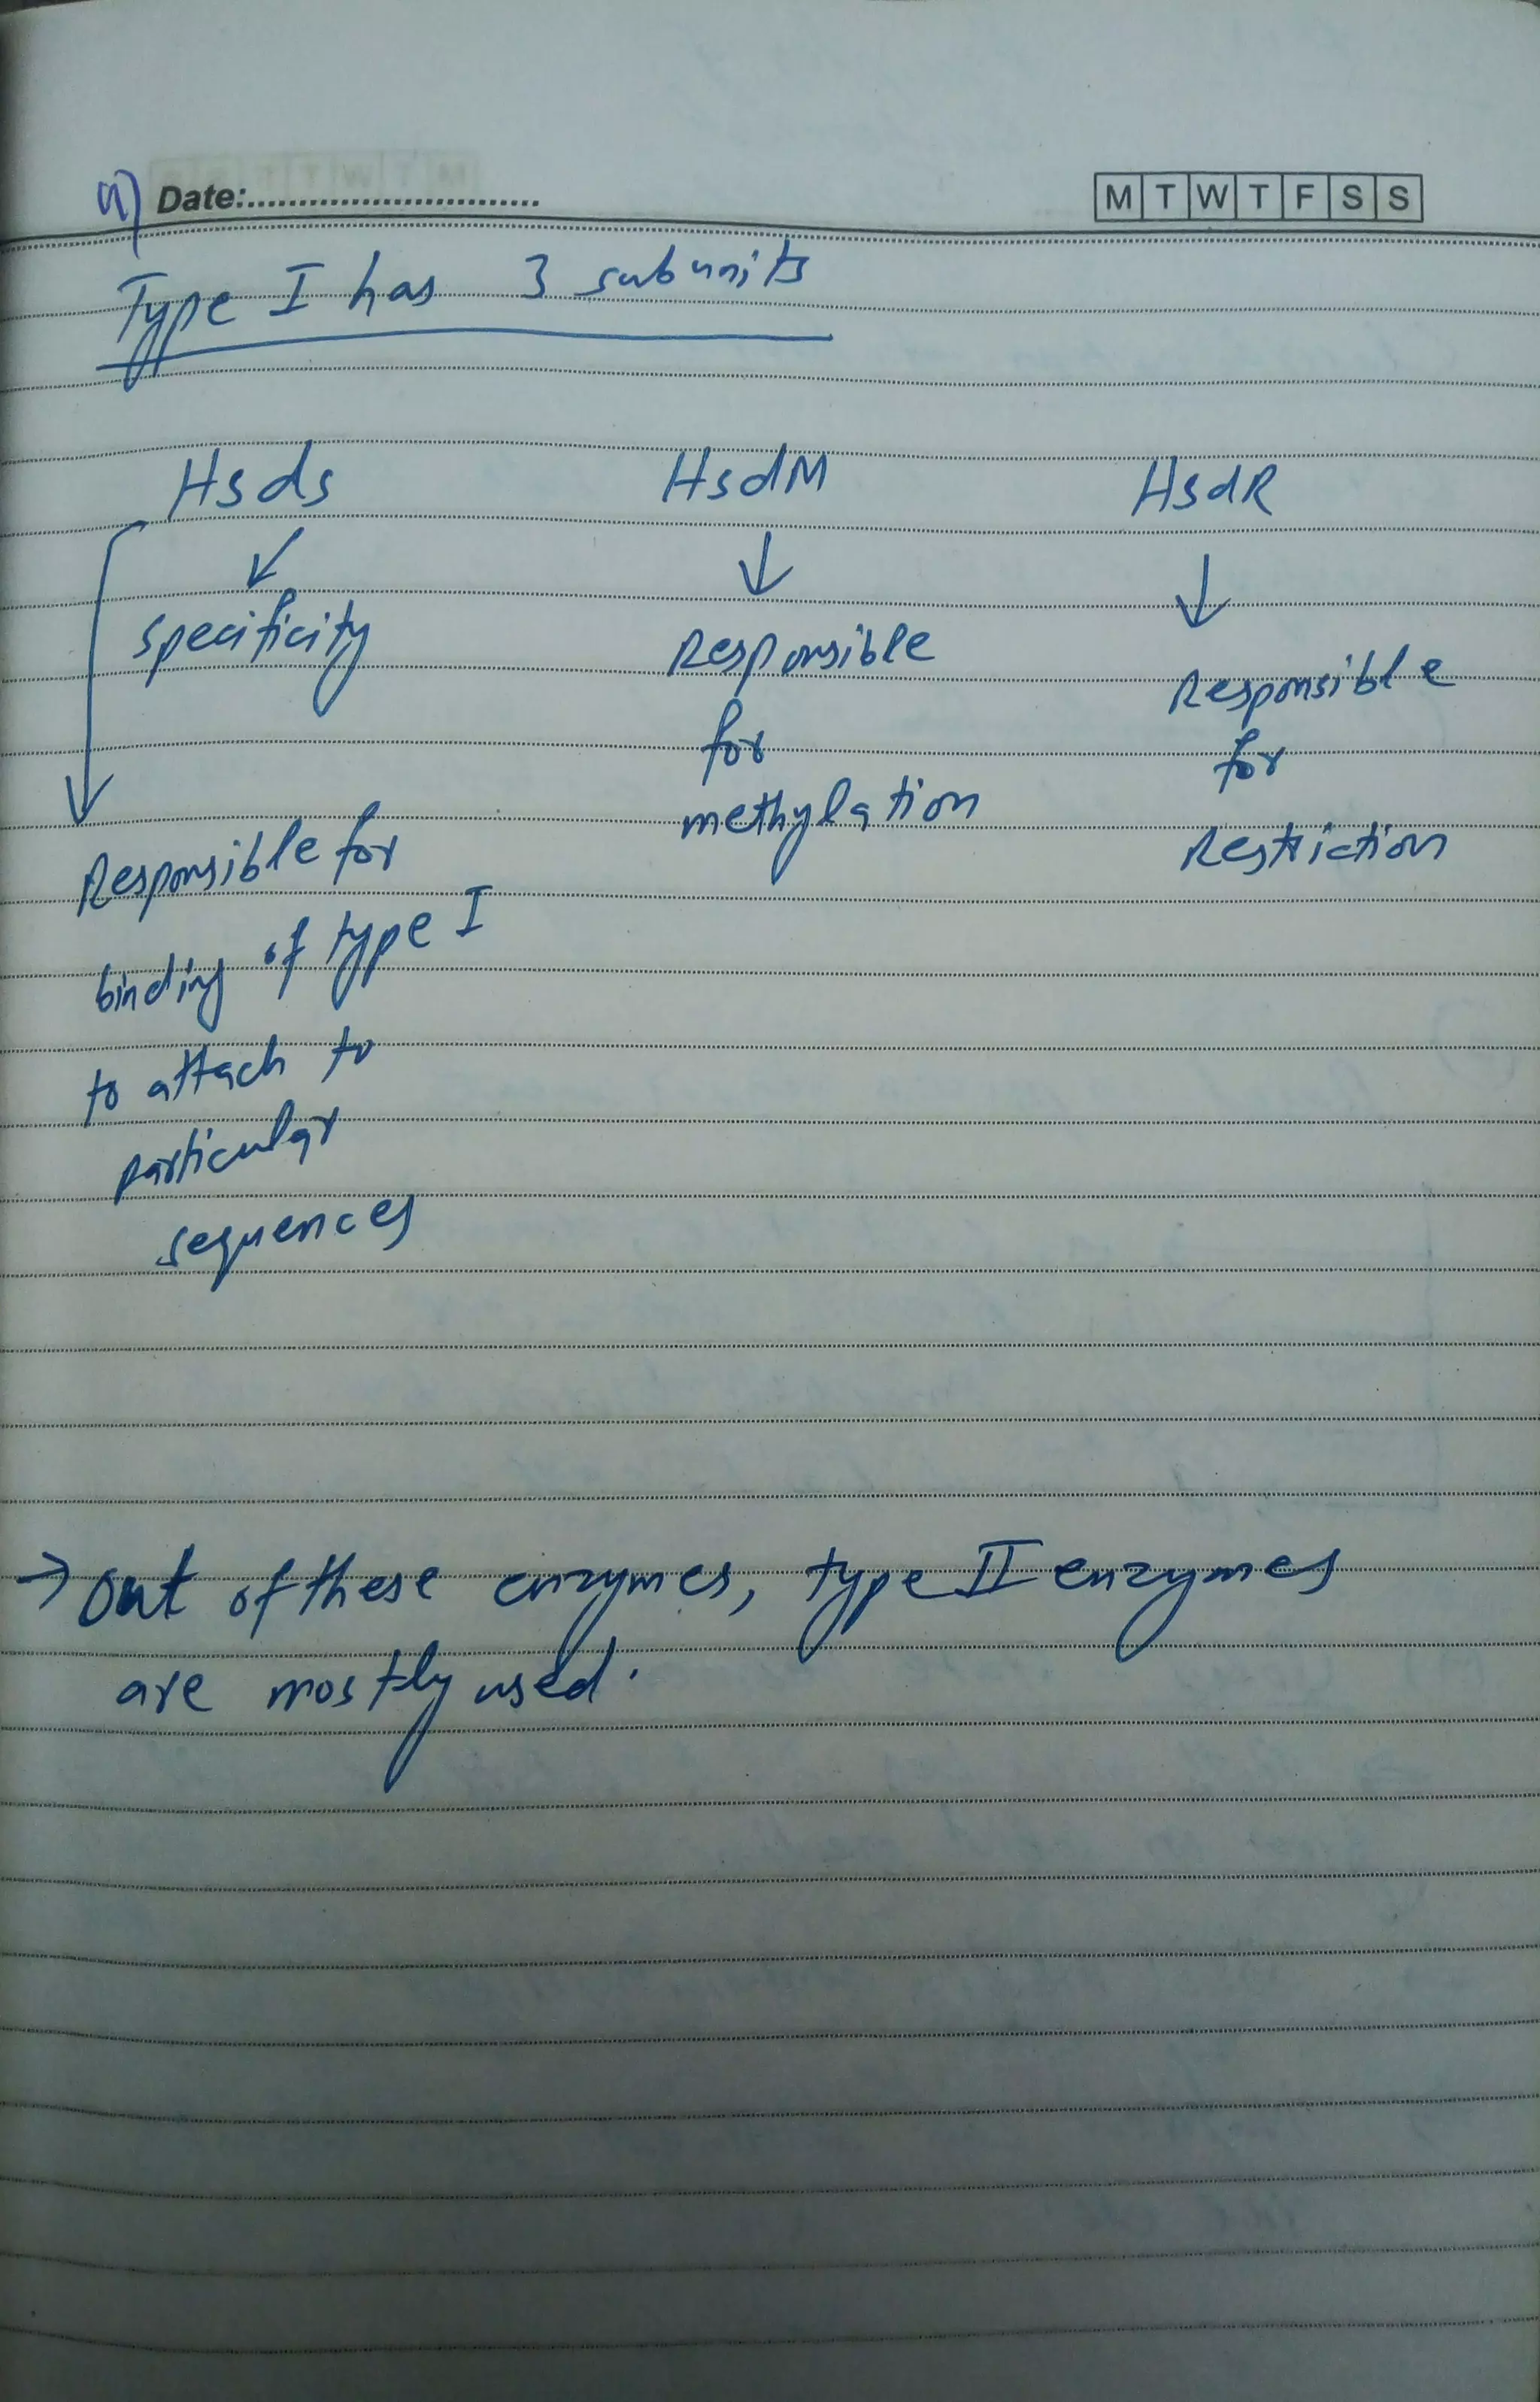 Date:
M T W T F S S
Type I has 3 subunits
Hsds
HsdM
HsdR
specificity
Responsible for
binding of type I
to attach to
particular
sequences
Responsible
for
methylation
Responsible
for
Restriction
→ Out of these enzymes, type II enzymes
are mostly used.